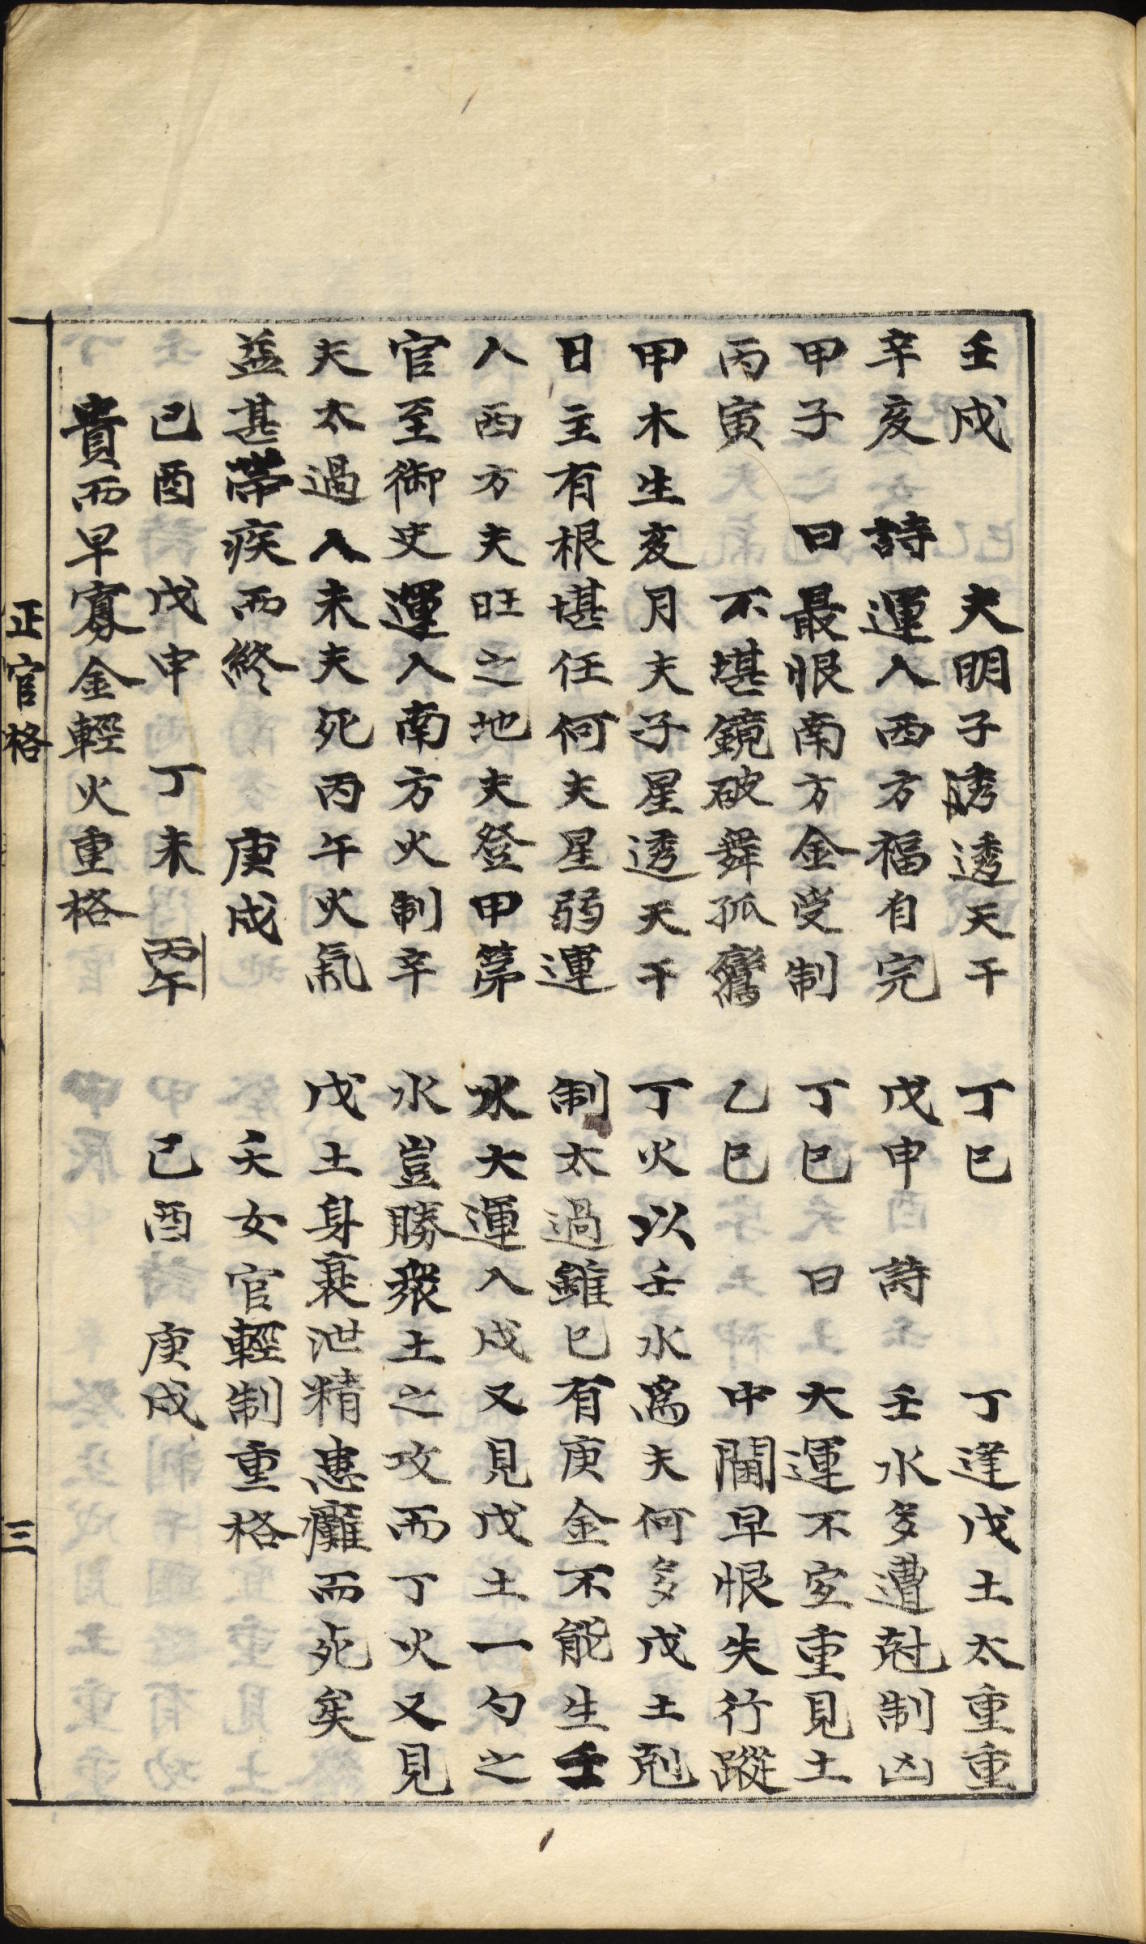 壬戌 夫明子透透天干
辛亥 詩 運入西方福自完
甲子 曰 最恨南方金受制
丙寅 不堪鏡破舞孤鸞
甲木生亥月夫子星透天干
日主有根堪任何夫星弱運
入西方夫旺之地夫登甲第
官至御史運入南方火制辛
夫太過入未夫死丙午火氣
益甚帶疾而終 庚戌
己酉 戊申 丁未 丙午
貴而早寡金輕火重格
丁巳 丁逢戊土太重重
戊申 詩 壬水多遭尅制凶
丁巳 曰 大運不宜重見土
乙巳 中閨早恨失行蹤
丁火以壬水爲夫何多戊土剋
制太過雖巳有庚金不能生壬
水大運入戌又見戊土一勺之
水豈勝衆土之攻而丁火又見
戊土身衰泄精患癱而死矣
夭女官輕制重格
己酉 庚戌
正官格 三